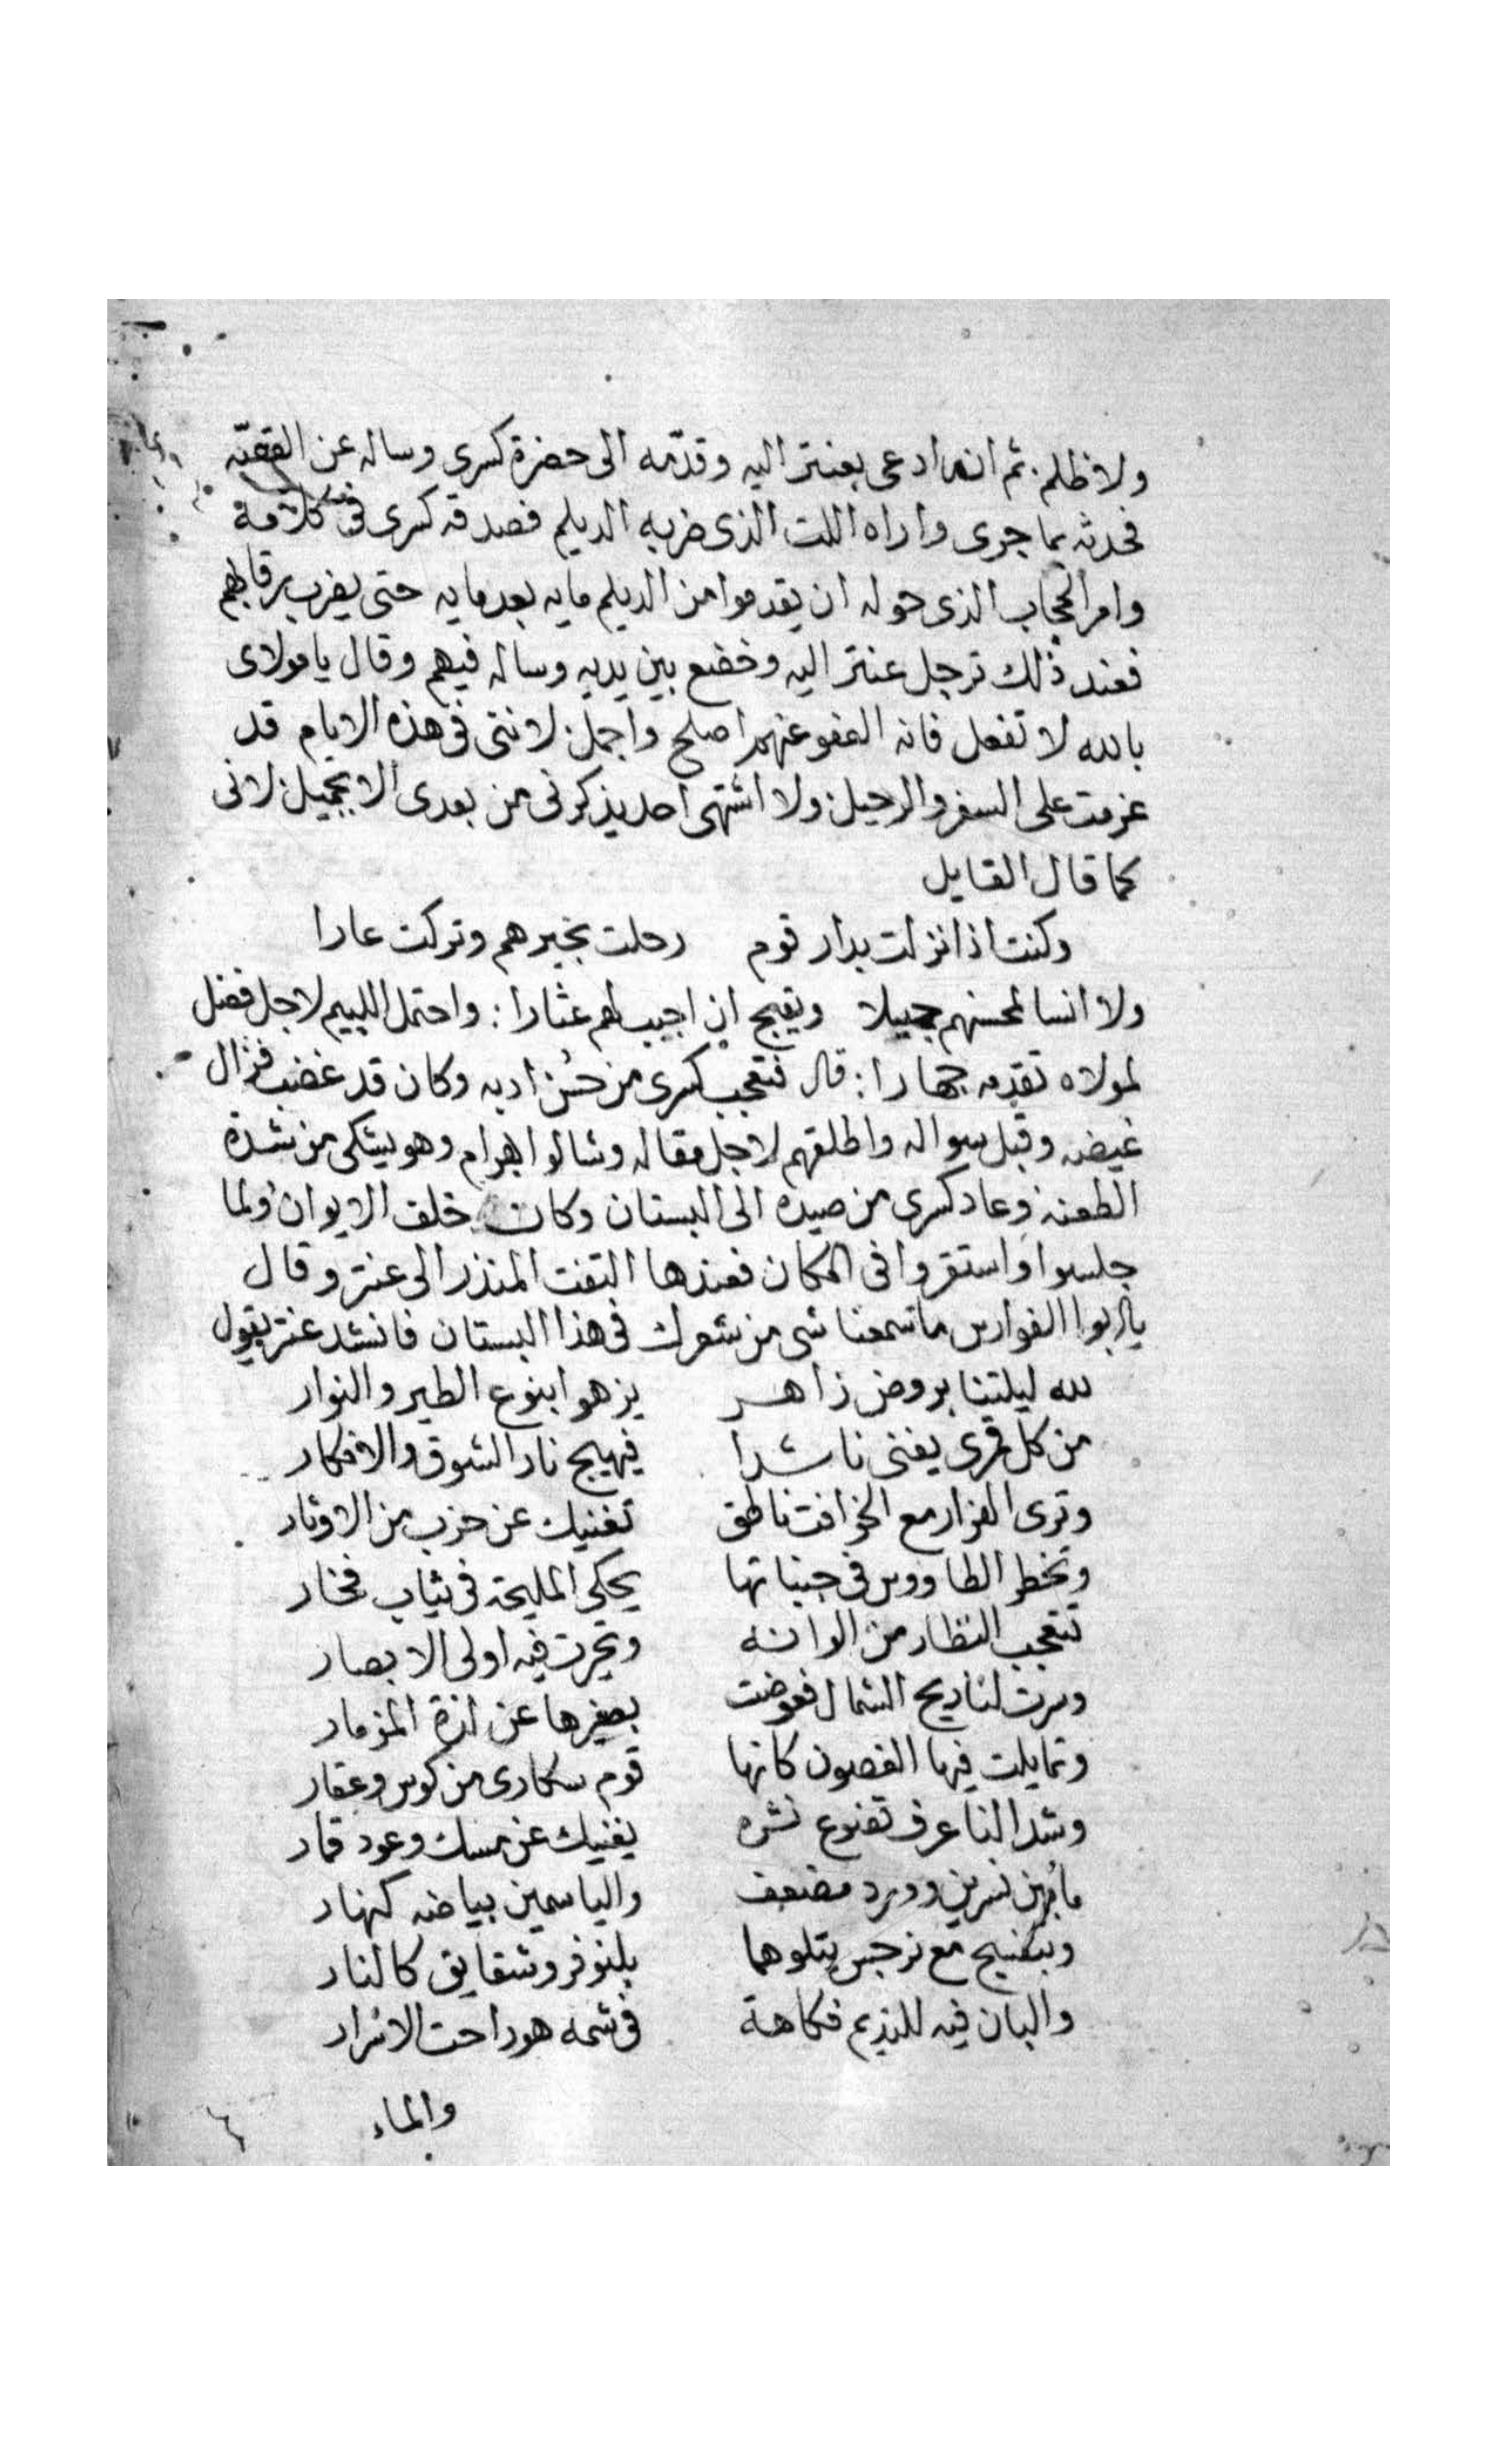 ولا ظلم: ثم انه ادعى بعنتر اليه وقدّمه الى حضرة كسرى وساله عن القصّه
فحدثه بما جرى واراه اللت الذى ضربه الديلم فصدقه كسرى فى كلامه
وامر الحجاب الذى حوله ان يقدموا من الديلم مايه بعد مايه حتى يضرب رقابهم
فعند ذلك ترجل عنتر اليه وخضع بين يديه وساله فيهم وقال يا مولاى
بالله لا تفعل فانه العفو عنهم اصلح واجمل: لاننى فى هذه الايام قد
عزمت على السفر والرحيل: ولا اشتهى احد يذكرنى من بعدى الا بجميل: لانى
كما قال القايل
وكنت اذا نزلت بدار قوم رحلت بخيرهم وتركت عارا
ولا انسا لمحسنهم جميلا ويقبح ان اجيب لهم عثارا: واحتمل اللييم لاجل فضل
لمولاه تقدمه جهارا: قال فتعجب كسرى من حُسن ادبه وكان قد غضب فزال
غيضه وقبل سواله واطلقهم لاجل مقاله وشالوا بهرام وهو يشكى من شدة
الطعنه وعاد كسرى من صيده الى البستان وكان خلف الايوان ولما
جلسوا واستقروا فى المكان فعندها التفت المنذر الى عنتر وقال
يا ابوا الفوارس ما تسمعنا شى من شعرك فى هذا البستان فانشد عنتر يقول
لله ليلتنا بروض زاهر يزهو ابنوع الطير والنوار
من كل قمرى يغنى ناشدا فيهيج نار الشوق والافكار
وترى الهزار مع الخرافت ناطق تغنيك عن ضرب من الاوتار
وتخطر الطاووس فى جنباتها يحكى المليحة فى ثياب فخار
تتعجب النظار من الوانه وتحيرت فيه اولى الابصار
وسرت لنا ريح الشمال فعوضت بصفيرها عن لذة المزمار
وتمايلت فيها الغصون كانها قوم سكارى من كوس وعقار
وشدا لنا عرف تضوع نشره يغنيك عن مسك وعود قمار
ما بين نسرين وورد مضعف والياسمين بياضه كنهار
وبنفسج مع نرجس يتلوهما بلنوفر وشقايق كالنار
والبان فيه للنديم فكاهة فى شمه هو راحت الاسرار
والماء